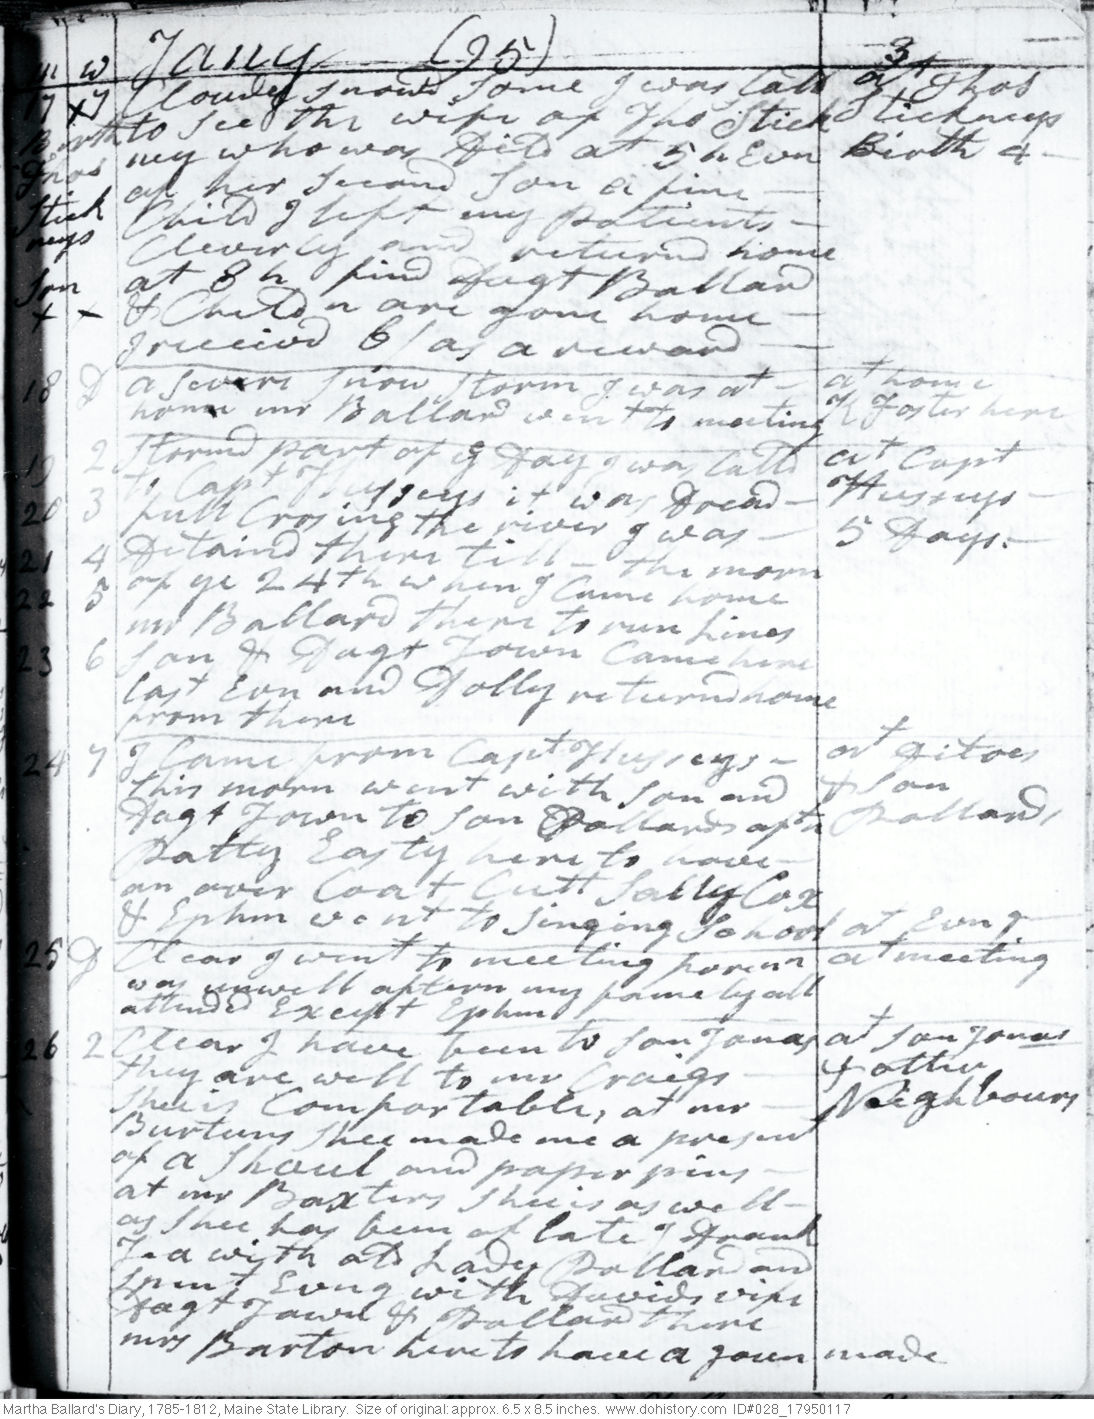 m w Jany (95) 3
17 x7 Cloudy snowd Some I was Calld at Thos
Birth to see the wife of Tho Stick Stickneys
Thos ney who was Delld at 5 h Evn Birth 4 -
of her Second Son a fine -
Stick Child I left my patients -
neys Cleverly and returnd home
Son at 8 h find Dagt Ballard
x x & Childn are gone home -
I received 6/ as a reward
18 D a severe snow storm I was at - at home
home mr Ballard went to meeting K Foster here
19 2 Stormd part of ye Day I was Calld at Capt
to Capt Husseys it was Dread - Husseys -
20 3 full Crosing the river I was - 5 Days. -
21 4 Detaind there till - the morn
22 5 of ye 24th when I Came home
mr Ballard there to run lines
23 6 Son & Dagt Town Came here
last Evn and Dolly returnd home
from there
24 7 I Came from Capt Husseys - at Ditoes
this morn went with Son and & Son
Dagt Town to Son Pollards aftn Pollards
Patty Easty here to have -
an over Coat Cutt Sally Cox
& Ephm went to Singing School at Evng
25 D Clear I went to meeting foren at meeting
was unwell aftern my famely all
attinded Except Ephm
26 2 Clear I have been to Son Jonas at Son Jonas
they are well to mr Craigs - & other
Shee is Comfortable, at mr - Neighbours
Burtuns Shee made me a present
of a Shaul and paper pins -
at mr Baxters Shee is as well -
as Shee has been of late I Drank
Tea with old Lady Pollard and
spent Evng with Davids wife
Dagt Town & Pollard there
mrs Barton here to have a gown made
Martha Ballard's Diary, 1785-1812, Maine State Library. Size of original: approx. 6.5 x 8.5 inches. www.dohistory.com ID#028_17950117